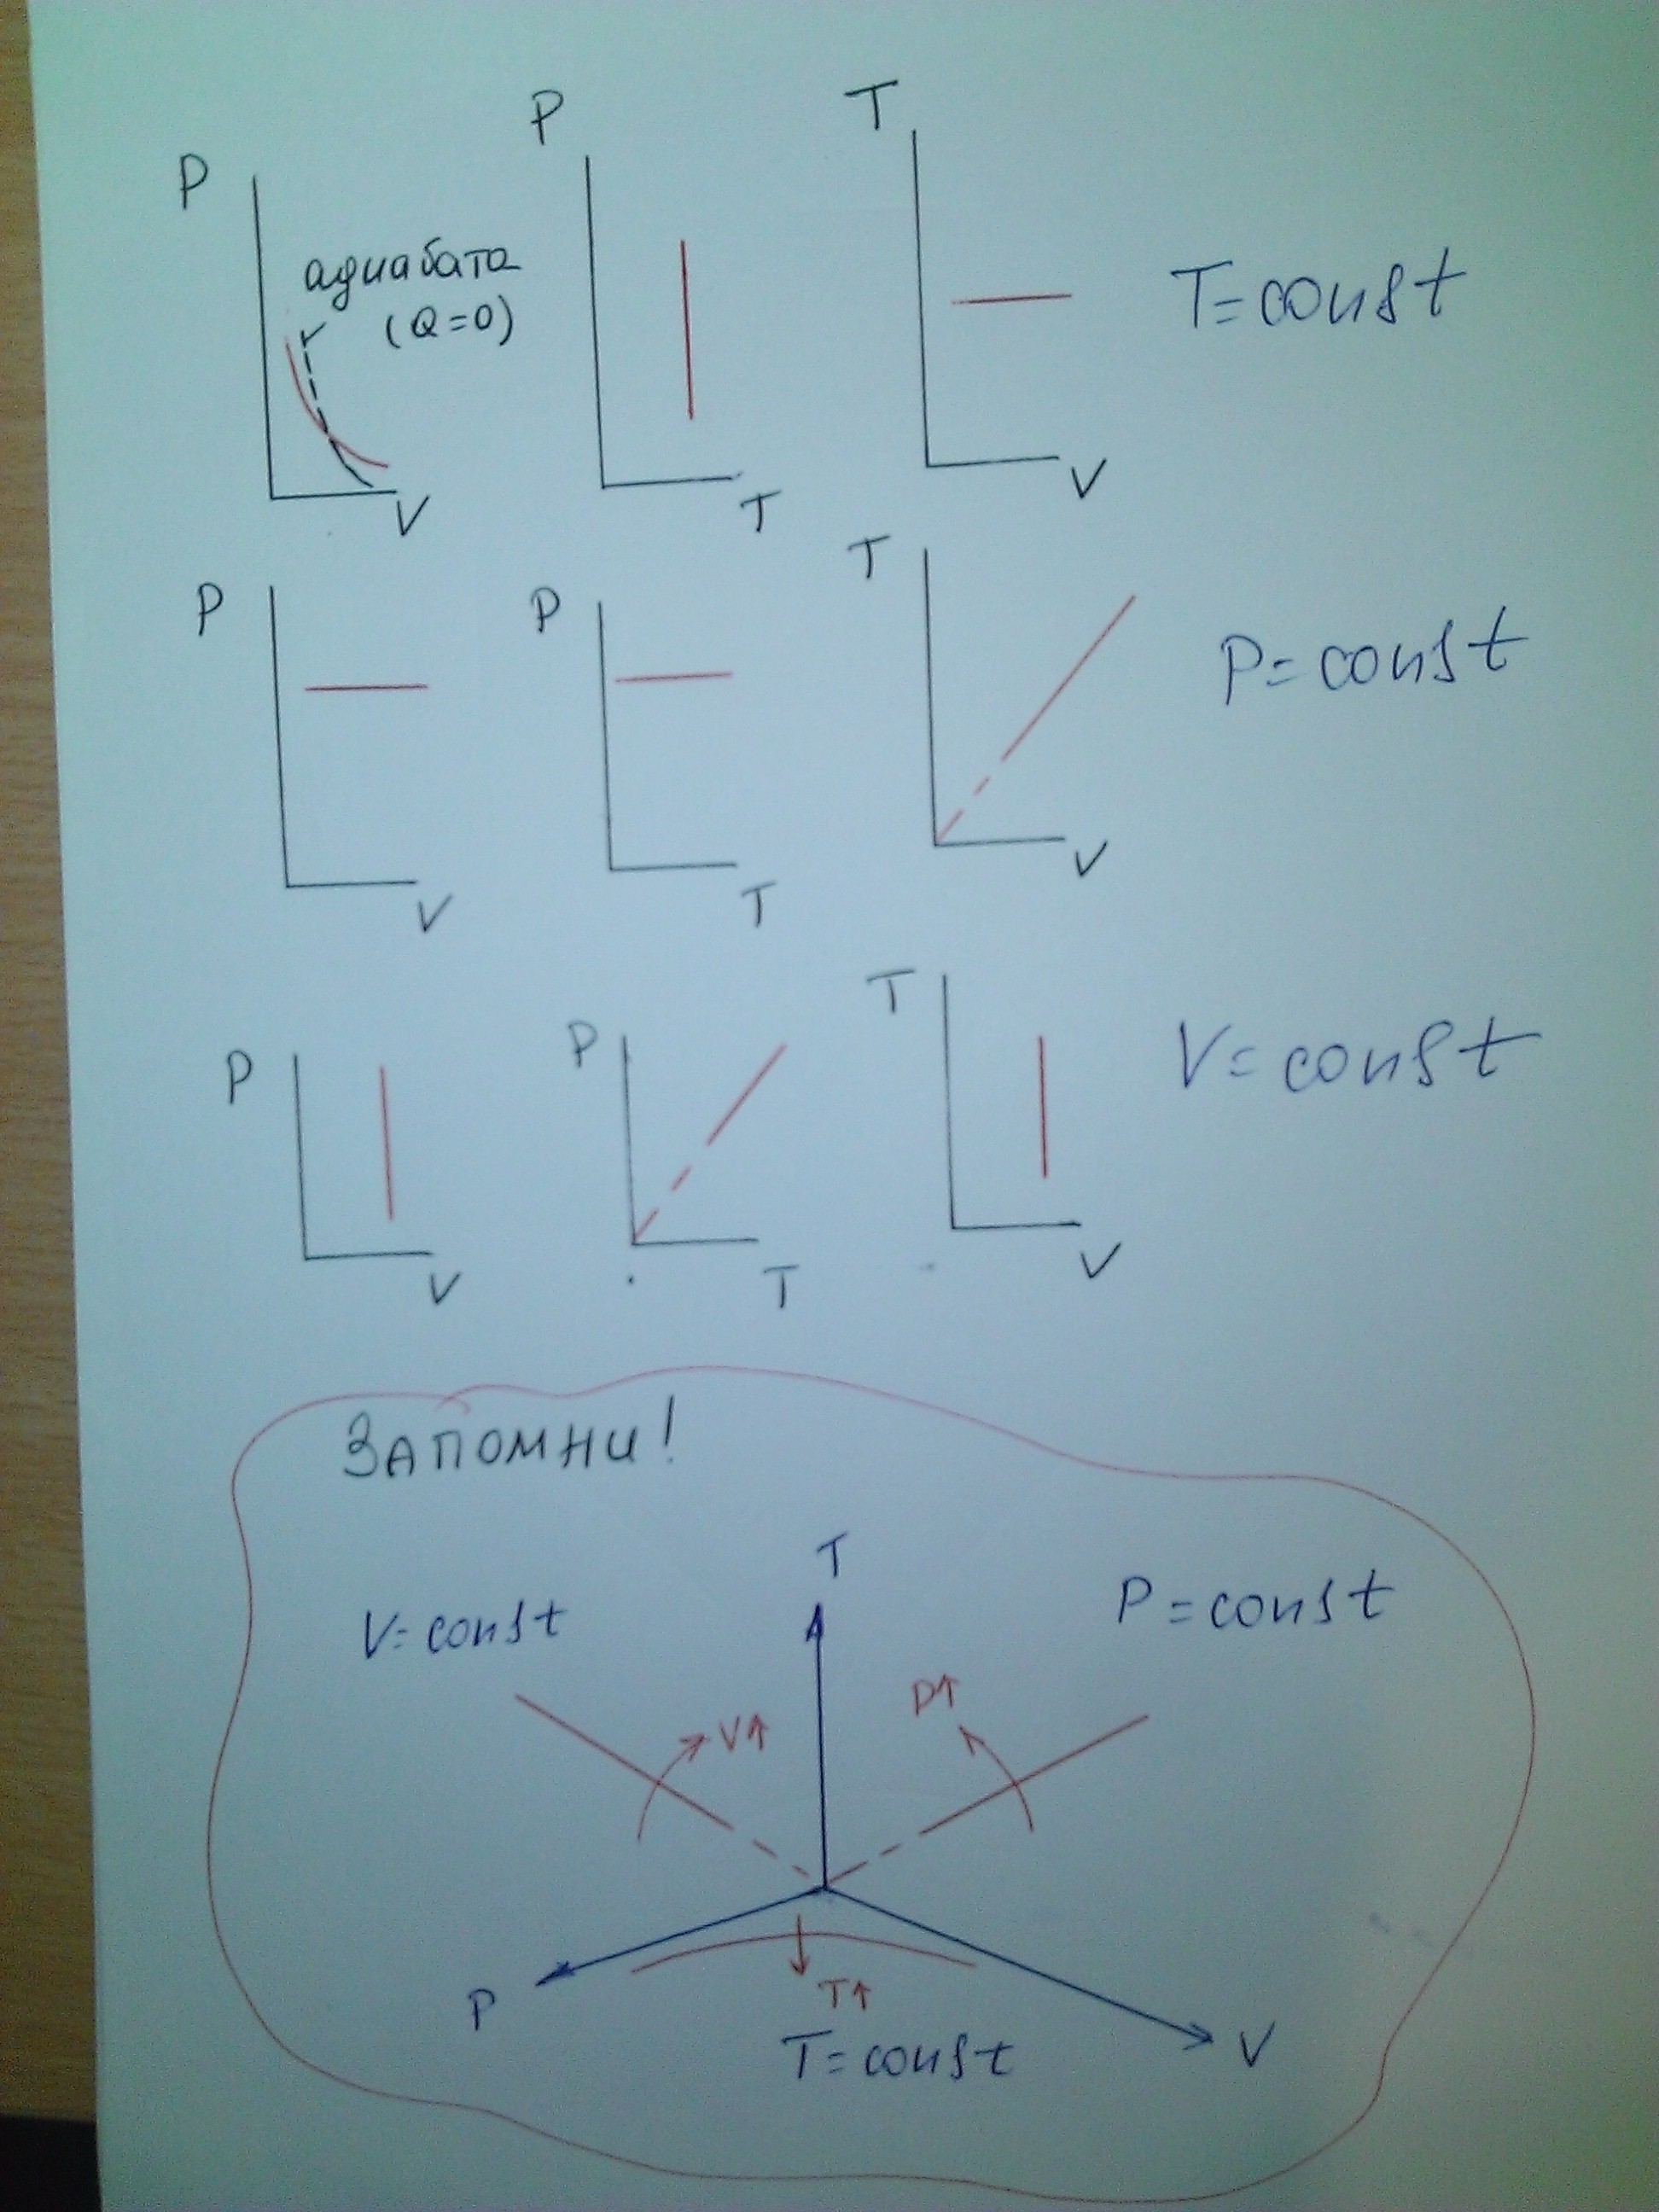 P
P
T
адиабата
(Q=0)
T=const
V
T
V
P
P
T
P=const
V
T
V
P
P
T
V=const
V
T
V
ЗАПОМНИ!
T
V=const
P=const
V↑
P↑
P
T↑
T=const
V